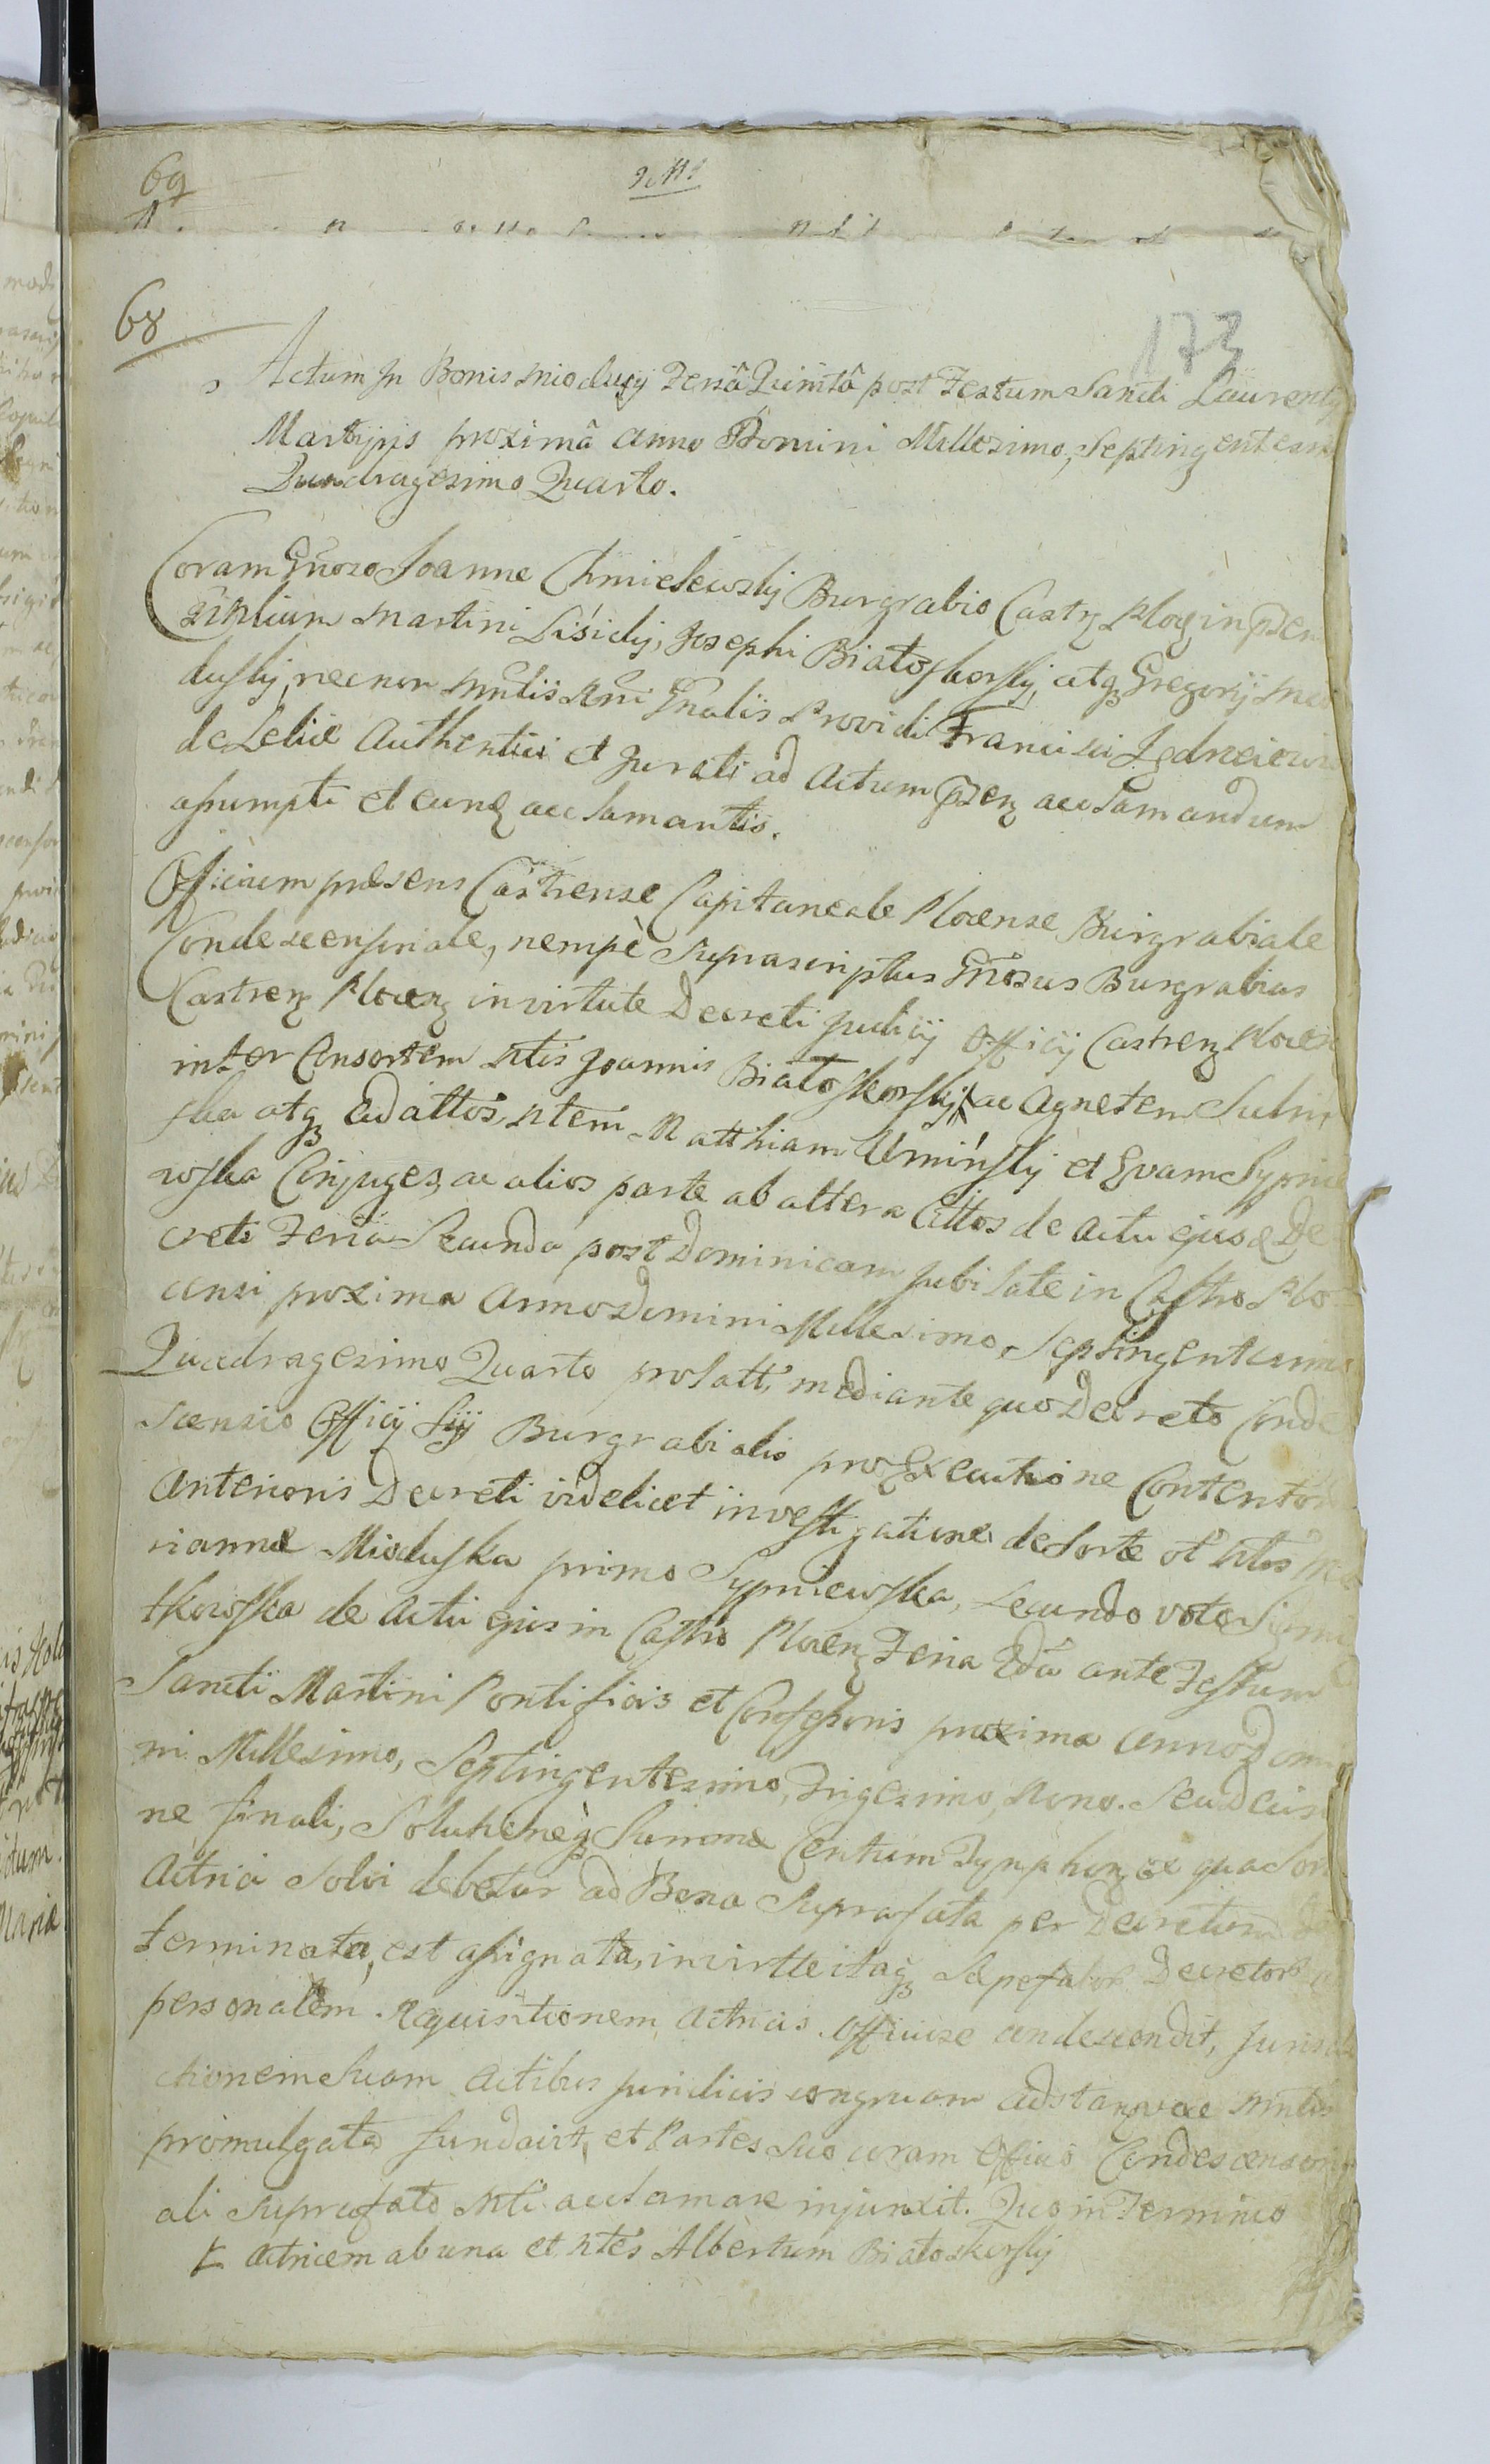 69
68
173
Actum In Bonis Mioduszy Feriâ Quintâ post Festum Sancti Laurentij
Martyris proximâ Anno Domini Millesimo, Septingentesimo
Quadragesimo Quarto.
Coram Gnoso Joanne Chmielewskij Burgrabio Castrz Ploc in przen
Martini Lisickj, Josephi Białoskorskj, atqz Gregorij
duskj, necnon Mntlis Rni Gnalis Providi Francisci
de Autthentici et Jurati ad Actum przenz acclamandum
assumpti et eunq acclamantis.
Officium præsens Castrense Capitaneale Plocense Burgrabiale
Condescensoriale, nempè Suprascriptus Gnosus Burgrabius
Castrenz Plocenz in virtute Decreti Judicij Officij Castrenz Plocen
inter Consortem Ntis Joannis Białoskorskij ac Agnetem
ska atqz adattos, Ntem Matthiam Uminskj et Evam Sypnie
wska Conjuges, ac alios parte ab altera Cittos de actu ejusd De
creti Feria Secunda post Dominicam Jubilate in Castro Plo
censi proxima Anno Domini Millesimo, Septingentesimo
Quadragesimo Quarto prolatt, mediante quo Decreto Conde
scensio Officij Sij Burgrabialis pro Executione Contentor
Anterioris Decreti videlicet investigatione de Sorte ol Ntos Ma
rianna Mioduska primo Sypniewska, secundo voto
tkowska de Actu ejus in Castro Plocenz Feria 2da ante Festum
Sancti Martini Pontificis et Confessoris proxima Anno Domi
ni Millesimo, Septingentesimo, Trigesimo, Nono. Seu
ne finali, Solutioneqz Summæ Centum Tynphonz quæ
Actrici Solvi debetur ad Bona Suprafata per Decretum De
terminata, est assignata, in virtte itaqz Sæpefator Decretor
personalem Requisitionem Actricis Officiose condescendit, Jurisdi
ctionem Suam Actibus Juridicis congruam adstanvae Mntlis
promulgata fundavit, et Partes Suo coram Officio Condescensori
ali Suprafato Ntli acclamare injunxit. Quo in Termino
Actricem ab una et Ntes Albertum Białoskorskij